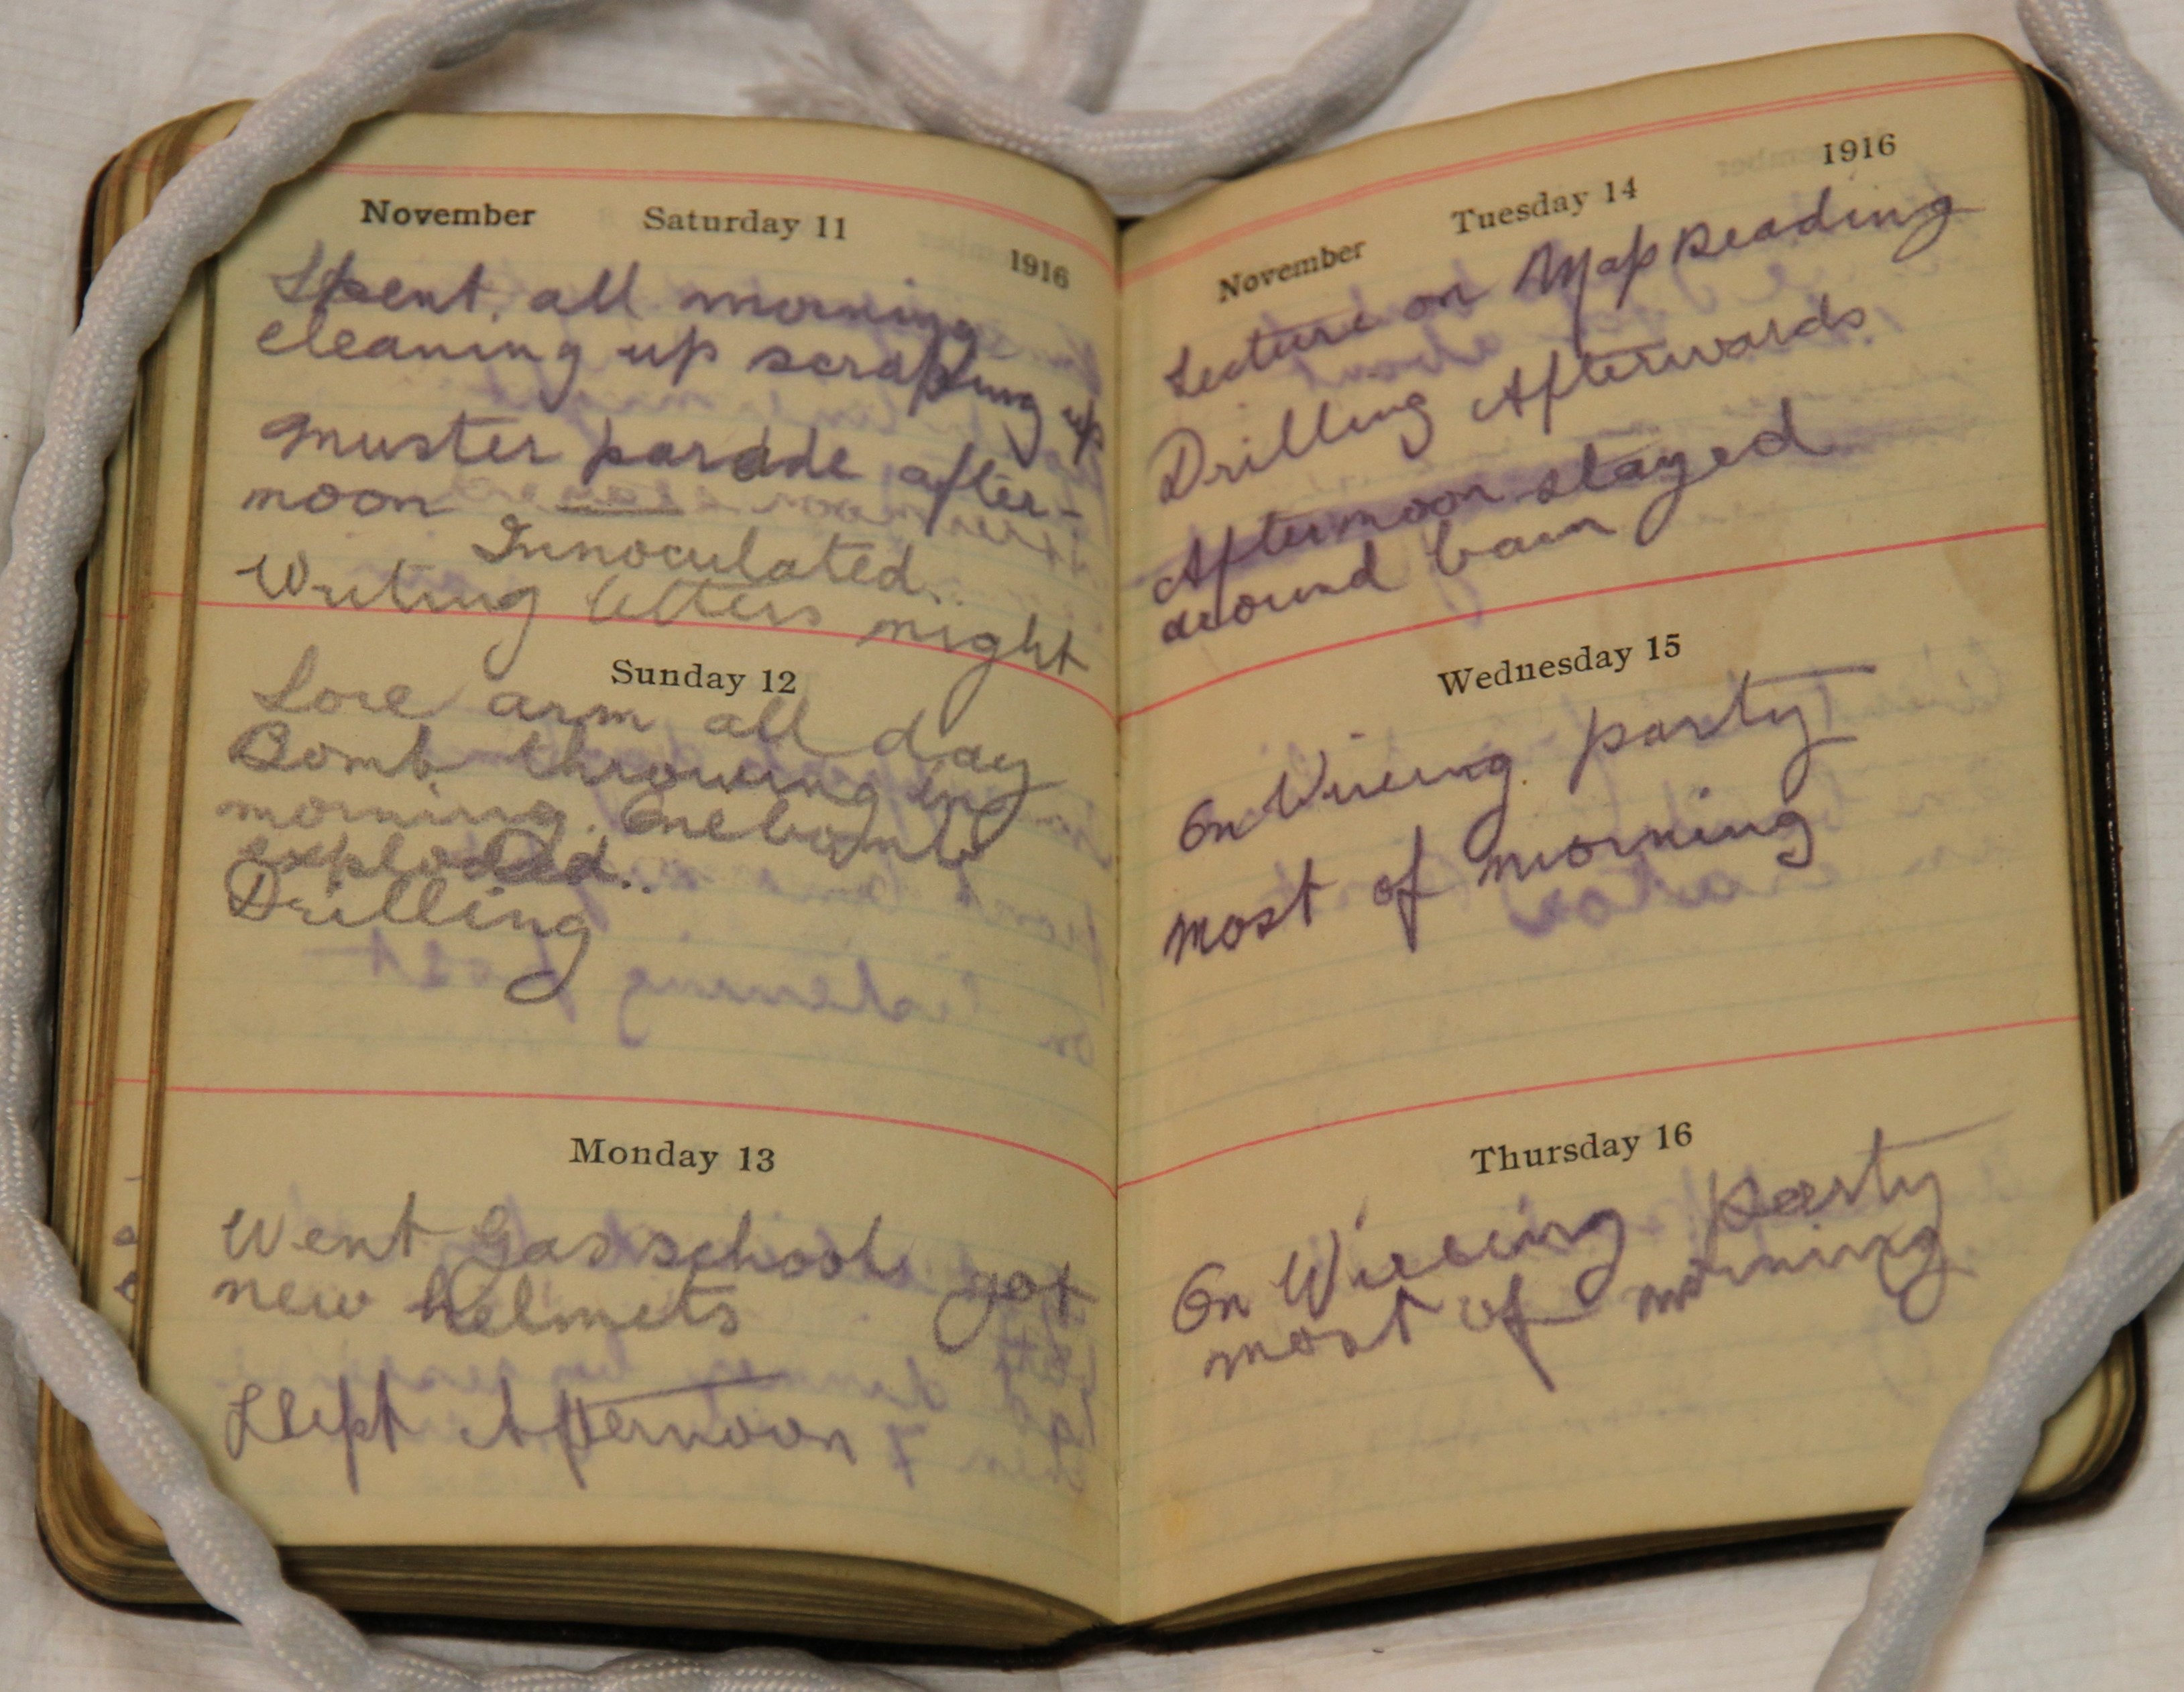 November Saturday 11 1916
Spent all morning
cleaning up scraping up
Muster parade after-
noon
Innoculated..
Writing letters night
Sunday 12
Sore arm all day
Bomb throwing in
morning. One bomb
exploded..
Drilling
Monday 13
Went Gas school got
new helmets
Slept Afternoon
November Tuesday 14 1916
Lecture on Map Reading
Drilling Afterwards
Afternoon stayed
around barn
Wednesday 15
On Wireing party
most of morning
Thursday 16
On Wireing Party
most of morning